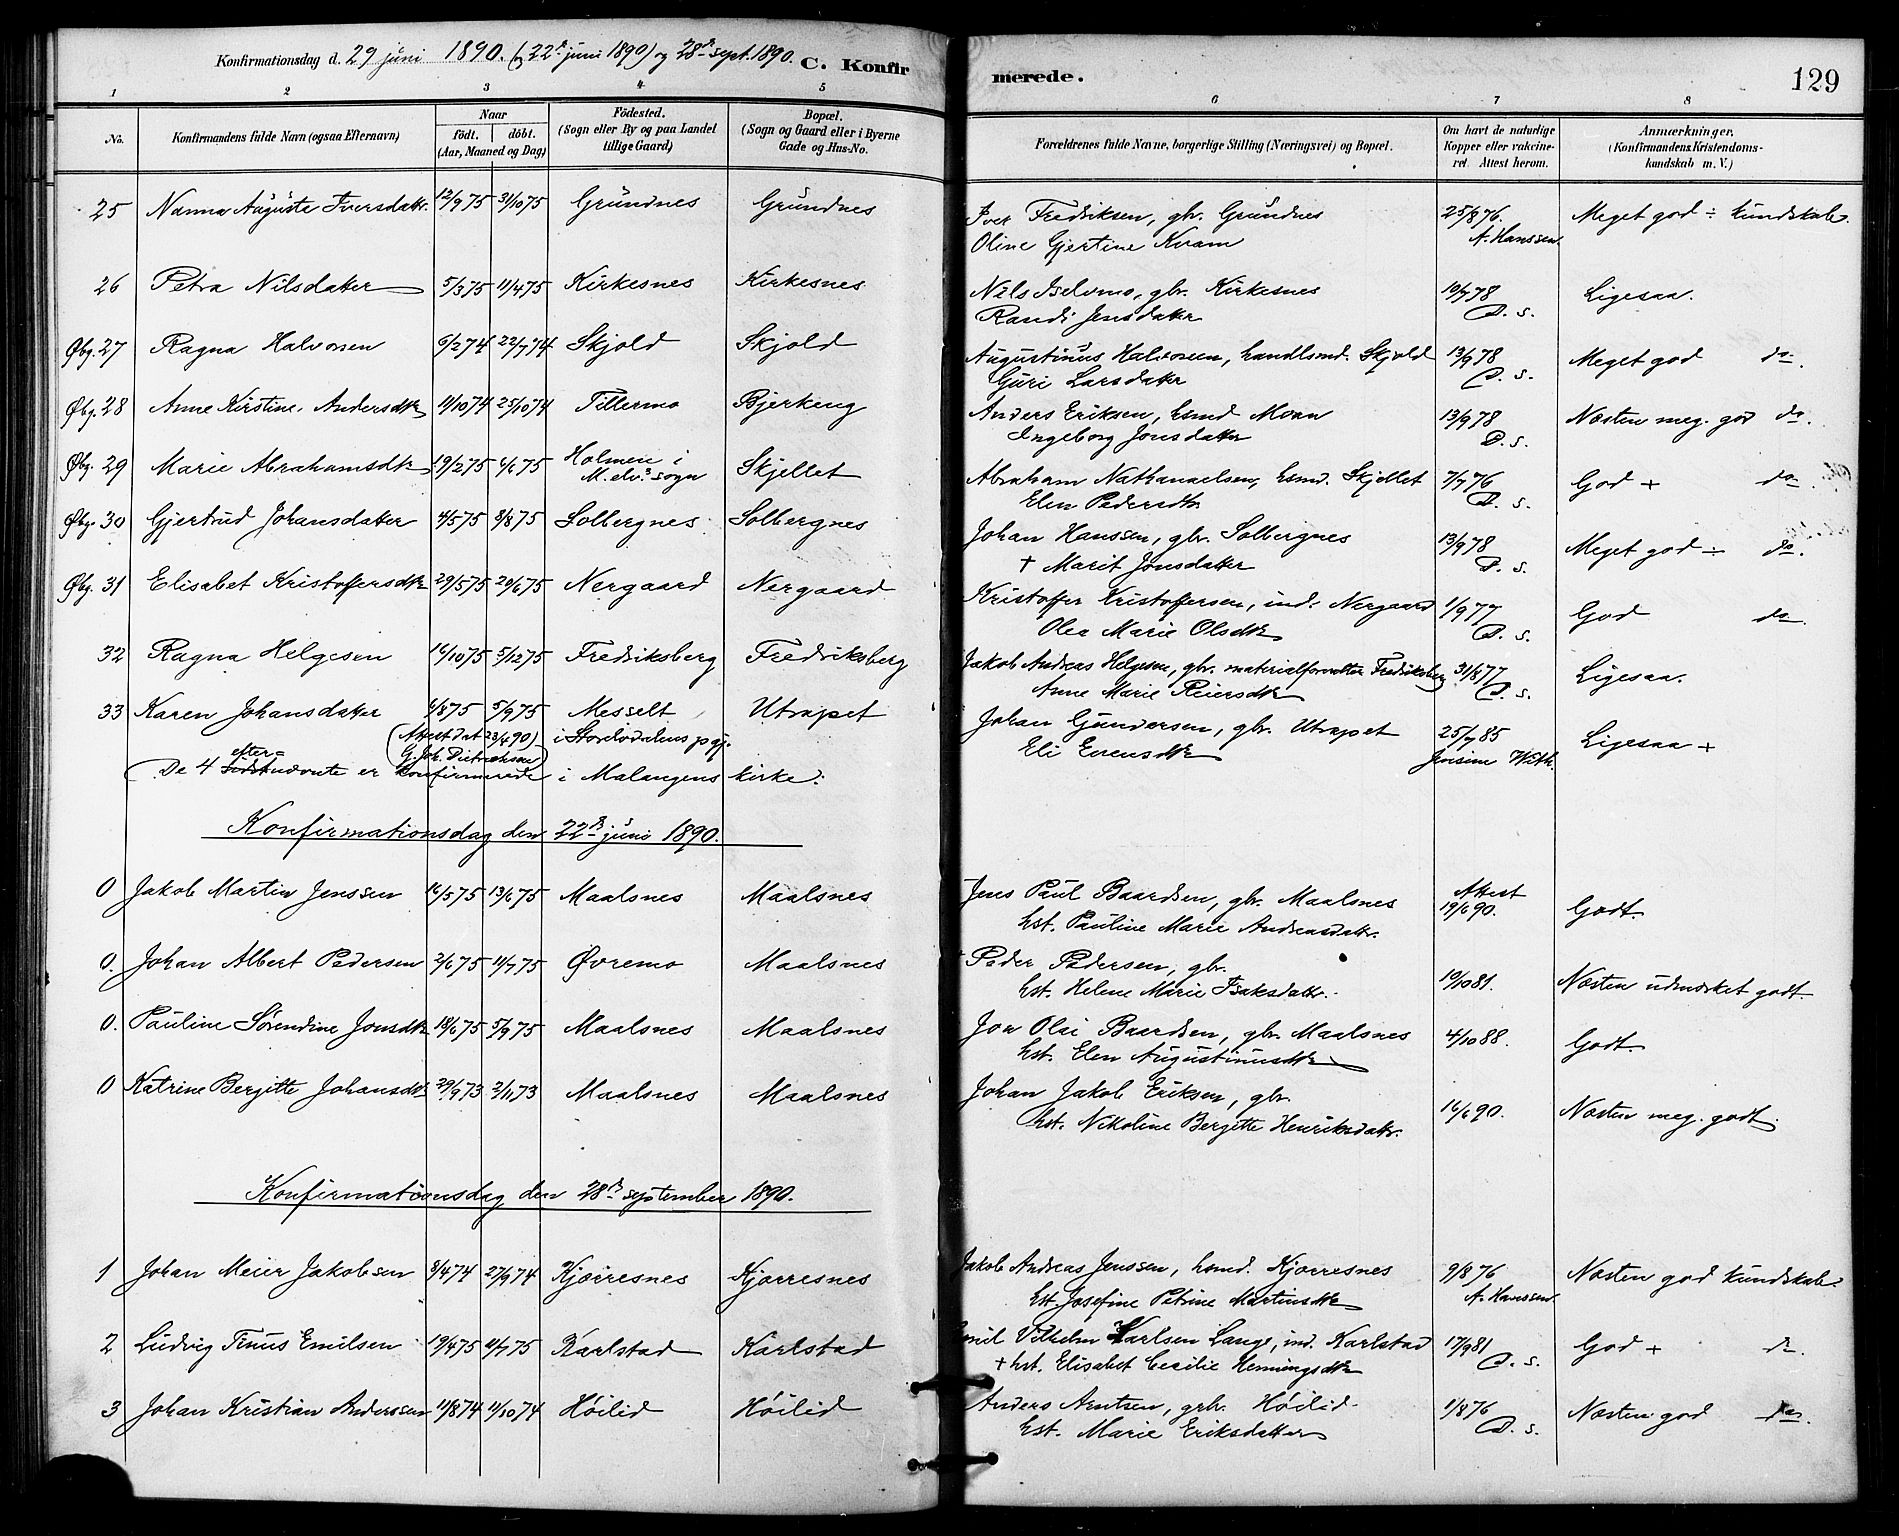 Konfirmationsdag d. 29 juni 1890. (22de juni 1890) og 28de sept. 1890. C. Konfir merede. 129
1 2 3 4 5 6 7 8
No. Konfirmandens fulde Navn (ogsaa Efternavn) Naar født. døbt. (Aar, Maaned og Dag) Fødested. (Sogn eller By og paa Landet tillige Gaard) Bopæl. (Sogn og Gaard eller i Byerne Gade og Hus-No. Forældrenes fulde Navne, borgerlige Stilling (Næringsvei) og Bopæl. Om havt de naturlige Kopper eller vakcineret. Attest herom. Anmærkninger. (Konfirmandens Kristendomskundskab m. V.)
25 Nanna Auguste Iversdatr. 12/9 75 31/10 75 Grundnes Grundnes Iver Fredriksen, gbr. Grundnes 25/8 76. Meget god ÷ kundskab.
Oline Gjertine Kvam A. Hanssen
26 Petra Nilsdatter 5/3 75 11/4 75 Kirkesnes Kirkesnes Nils Iselvmo, gbr. Kirkesnes 10/7 78 Ligesaa.
Randi Jensdatter D. s.
Øbg. 27 Ragna Halvorsen 6/2 74 22/7 74 Skjold Skjold Augustinus Halvorsen, handlsmd. Skjold 13/9 78 Meget god do.
Guri Larsdatr D. s.
Øbg. 28 Anne Kirstine Andersdtr 11/10 74 25/10 74 Tillermo Bjerkeng Anders Eriksen, hsmd Moan 13/9 78 Næsten meg. god do.
Ingeborg Jonsdatter D. s.
Øbg. 29 Marie Abrahamsdtr 19/2 75 6/6 75 Holmen i M.elv. sogn Skjellet Abraham Nathanaelsen, hsmd. Skjellet 7/7 76 God + do
Elen Pedersdtr D. s.
Øbg. 30 Gjertrud Johansdatter 4/5 75 8/8 75 Solbergnes Solbergnes Johan Hanssen, gbr. Solbergnes 13/9 78 Meget god ÷ do.
+ Marit Jonsdatter D. s.
Øbg. 31 Elisabet Kristoffersdtr 29/5 75 20/6 75 Nergaard Nergaard Kristoffer Kristoffersen, ind. Nergaard 1/9 77 God do
Olea Marie Olsdtr D. s.
32 Ragna Helgesen 16/10 75 5/12 75 Fredriksberg Fredriksberg Jakob Andreas Helgesen, gbr. materialforvalter Fredriksberg 31/8 77 Ligesaa.
Anne Marie Reiersdtr D. s.
33 Karen Johansdatter 6/8 75 5/9 75 Messelt Utrapet Johan Gundersen, gbr. Utrapet 25/7 85 Ligesaa +
(Attest dat 23/4 90) i Storelvdalens pgj. Eli Evensdtr Jensine With.
G. Joh. Dietrichson
De 4 efter= nævnte er konfirmerede i Malangens kirke:
Konfirmationsdag den 22de juni 1890.
0 Jakob Martin Jenssen 16/5 75 13/6 75 Maalsnes Maalsnes Jens Paul Baardsen, gbr. Maalsnes Attest 19/6 90. Godt.
hst. Pauline Marie Andreasdatr.
0. Johan Albert Pedersen 2/6 75 11/7 75 Øvremo Maalsnes Peder Pedersen, gbr. 19/10 81. Næsten udmærket godt.
hst. Helene Marie Isaksdatr.
0. Pauline Sørendine Jonsdtr 18/6 75 5/9 75 Maalsnes Maalsnes Jon Olai Baardsen, gbr. Maalsnes 4/10 88. Godt.
hst. Elen Augustinusdtr
0 Katrine Bergitte Johansdtr 29/9 73 2/11 73 Maalsnes Maalsnes Johan Jakob Eriksen, gbr. 16/6 90. Næsten meg. godt.
hst. Nikoline Bergitte Henriksdatr.
Konfirmationsdag den 28de september 1890.
1 Johan Meier Jakobsen 3/4 74 27/9 74 Kjærresnes Kjærresnes Jakob Andreas Jenssen, hsmd. Kjærresnes 9/8 76 Næsten god kundskab.
hst. Josefine Petrine Martinsdtr A. Hanssen
2 Ludvig Tinus Emilsen 19/4 75 11/7 75 Karlstad Karlstad Emil Vilhelm Karlsen Lange, ind. Karlstad 17/9 81 God + do.
+ hst. Elisabet Cecilie Henningsdtr D. s.
3 Johan Kristian Anderssen 11/8 74 11/10 74 Høilid Høilid Anders Arntsen, gbr. Høilid 1/8 76 Næsten god do.
hst. Marie Eriksdatter D. s.